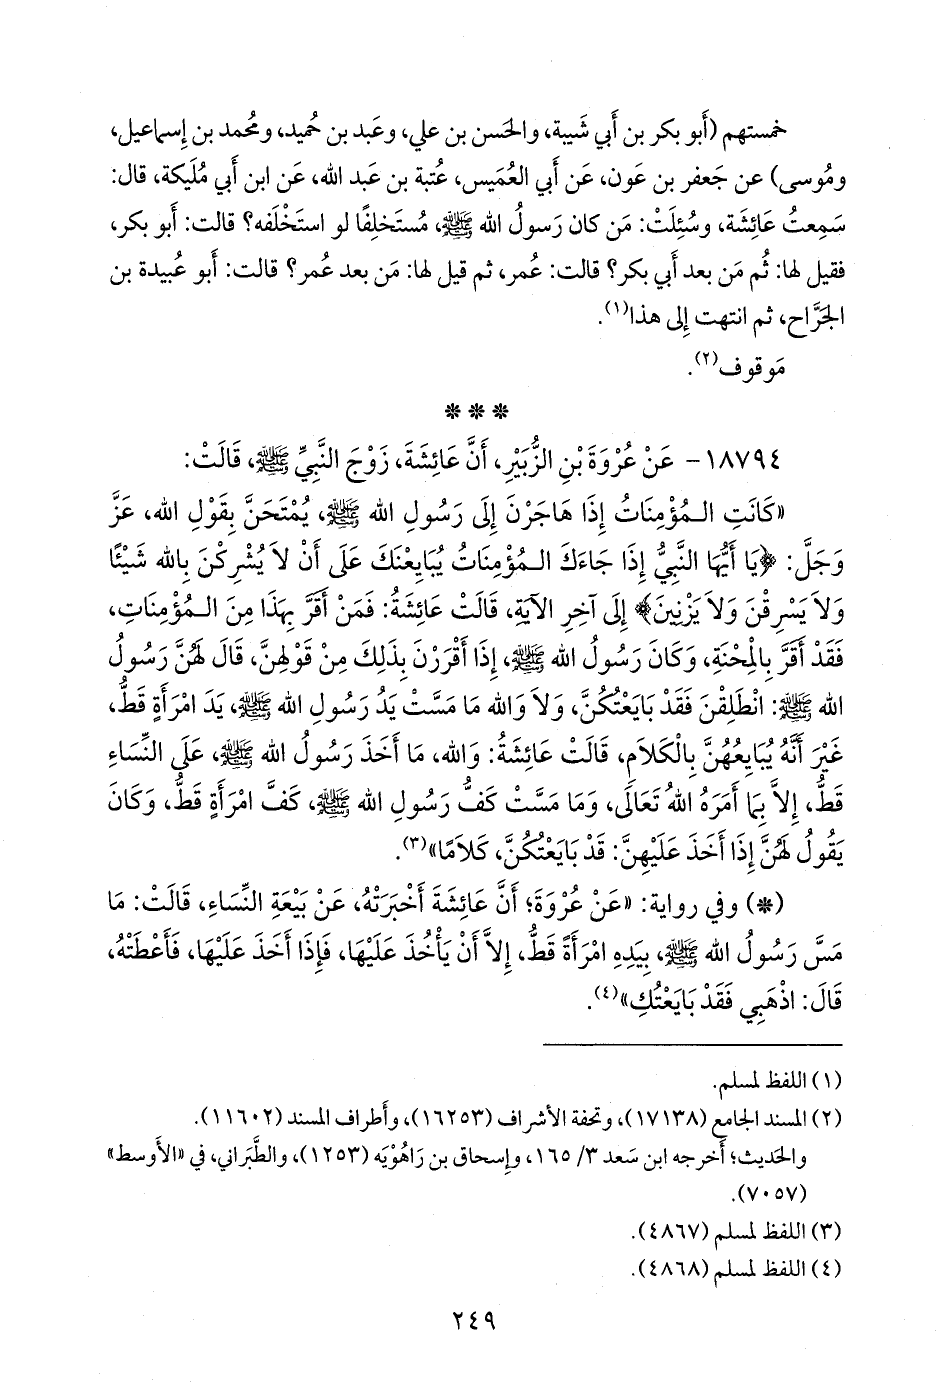 خمستهم (أَبو بكر بن أَبي شَيبة، والحَسن بن علي، وعَبد بن حُميد، ومُحمد بن إِسماعيل،
ومُوسى) عن جَعفر بن عَون، عَن أَبي العُمَيس، عُتبة بن عَبد الله، عَن ابن أَبي مُلَيكة، قال:
سَمِعتُ عَائِشَة، وسُئِلَتْ: مَن كان رَسولُ الله ﷺ، مُستَخلِفًا لو استَخْلَفه؟ قالت: أَبو بكر،
فقيل لها: ثُم مَن بعد أَبي بكر؟ قالت: عُمر، ثم قيل لها: مَن بعد عُمر؟ قالت: أَبو عُبيدة بن
الجَرَّاح، ثم انتهت إِلى هذا(١).
مَوقوف(٢).
* * *
١٨٧٩٤- عَنْ عُرْوَةَ بْنِ الزُّبَيْرِ، أَنَّ عَائِشَةَ، زَوْجَ النَّبِيِّ ﷺ، قَالَتْ:
«كَانَتِ الـمُؤْمِنَاتُ إِذَا هَاجَرْنَ إِلَى رَسُولِ الله ﷺ، يُمْتَحَنَّ بِقَوْلِ الله، عَزَّ
وَجَلَّ: ﴿يَا أَيُّهَا النَّبِيُّ إِذَا جَاءَكَ الـمُؤْمِنَاتُ يُبَايِعْنَكَ عَلَى أَنْ لاَ يُشْرِكْنَ بِالله شَيْئًا
وَلاَ يَسْرِقْنَ وَلاَ يَزْنِينَ﴾ إِلَى آخِرِ الآيَةِ، قَالَتْ عَائِشَةُ: فَمَنْ أَقَرَّ بِهَذَا مِنَ الـمُؤْمِنَاتِ،
فَقَدْ أَقَرَّ بِالْمِحْنَةِ، وَكَانَ رَسُولُ الله ﷺ، إِذَا أَقْرَرْنَ بِذَلِكَ مِنْ قَوْلِهِنَّ، قَالَ لَهُنَّ رَسُولُ
الله ﷺ: انْطَلِقْنَ فَقَدْ بَايَعْتُكُنَّ، وَلاَ وَالله مَا مَسَّتْ يَدُ رَسُولِ الله ﷺ، يَدَ امْرَأَةٍ قَطُّ،
غَيْرَ أَنَّهُ يُبَايِعُهُنَّ بِالْكَلاَمِ، قَالَتْ عَائِشَةُ: وَالله، مَا أَخَذَ رَسُولُ الله ﷺ، عَلَى النِّسَاءِ
قَطُّ، إِلاَّ بِمَا أَمَرَهُ اللهُ تَعَالَى، وَمَا مَسَّتْ كَفُّ رَسُولِ الله ﷺ، كَفَّ امْرَأَةٍ قَطُّ، وَكَانَ
يَقُولُ لَهُنَّ إِذَا أَخَذَ عَلَيْهِنَّ: قَدْ بَايَعْتُكُنَّ، كَلاَمًا»(٣).
(*) وفي رواية: «عَنْ عُرْوَةَ؛ أَنَّ عَائِشَةَ أَخْبَرَتْهُ، عَنْ بَيْعَةِ النِّسَاءِ، قَالَتْ: مَا
مَسَّ رَسُولُ الله ﷺ، بِيَدِهِ امْرَأَةً قَطُّ، إِلاَّ أَنْ يَأْخُذَ عَلَيْهَا، فَإِذَا أَخَذَ عَلَيْهَا، فَأَعْطَتْهُ،
قَالَ: اذْهَبِي فَقَدْ بَايَعْتُكِ»(٤).
(١) اللفظ لمسلم.
(٢) المسند الجامع (١٧١٣٨)، وتحفة الأشراف (١٦٢٥٣)، وأَطراف المسند (١١٦٠٢).
والحَديث؛ أَخرجه ابن سَعد ٣/ ١٦٥، وإِسحاق بن رَاهُوْيَه (١٢٥٣)، والطَّبَراني، في «الأَوسط»
(٧٠٥٧).
(٣) اللفظ لمسلم (٤٨٦٧).
(٤) اللفظ لمسلم (٤٨٦٨).
٢٤٩